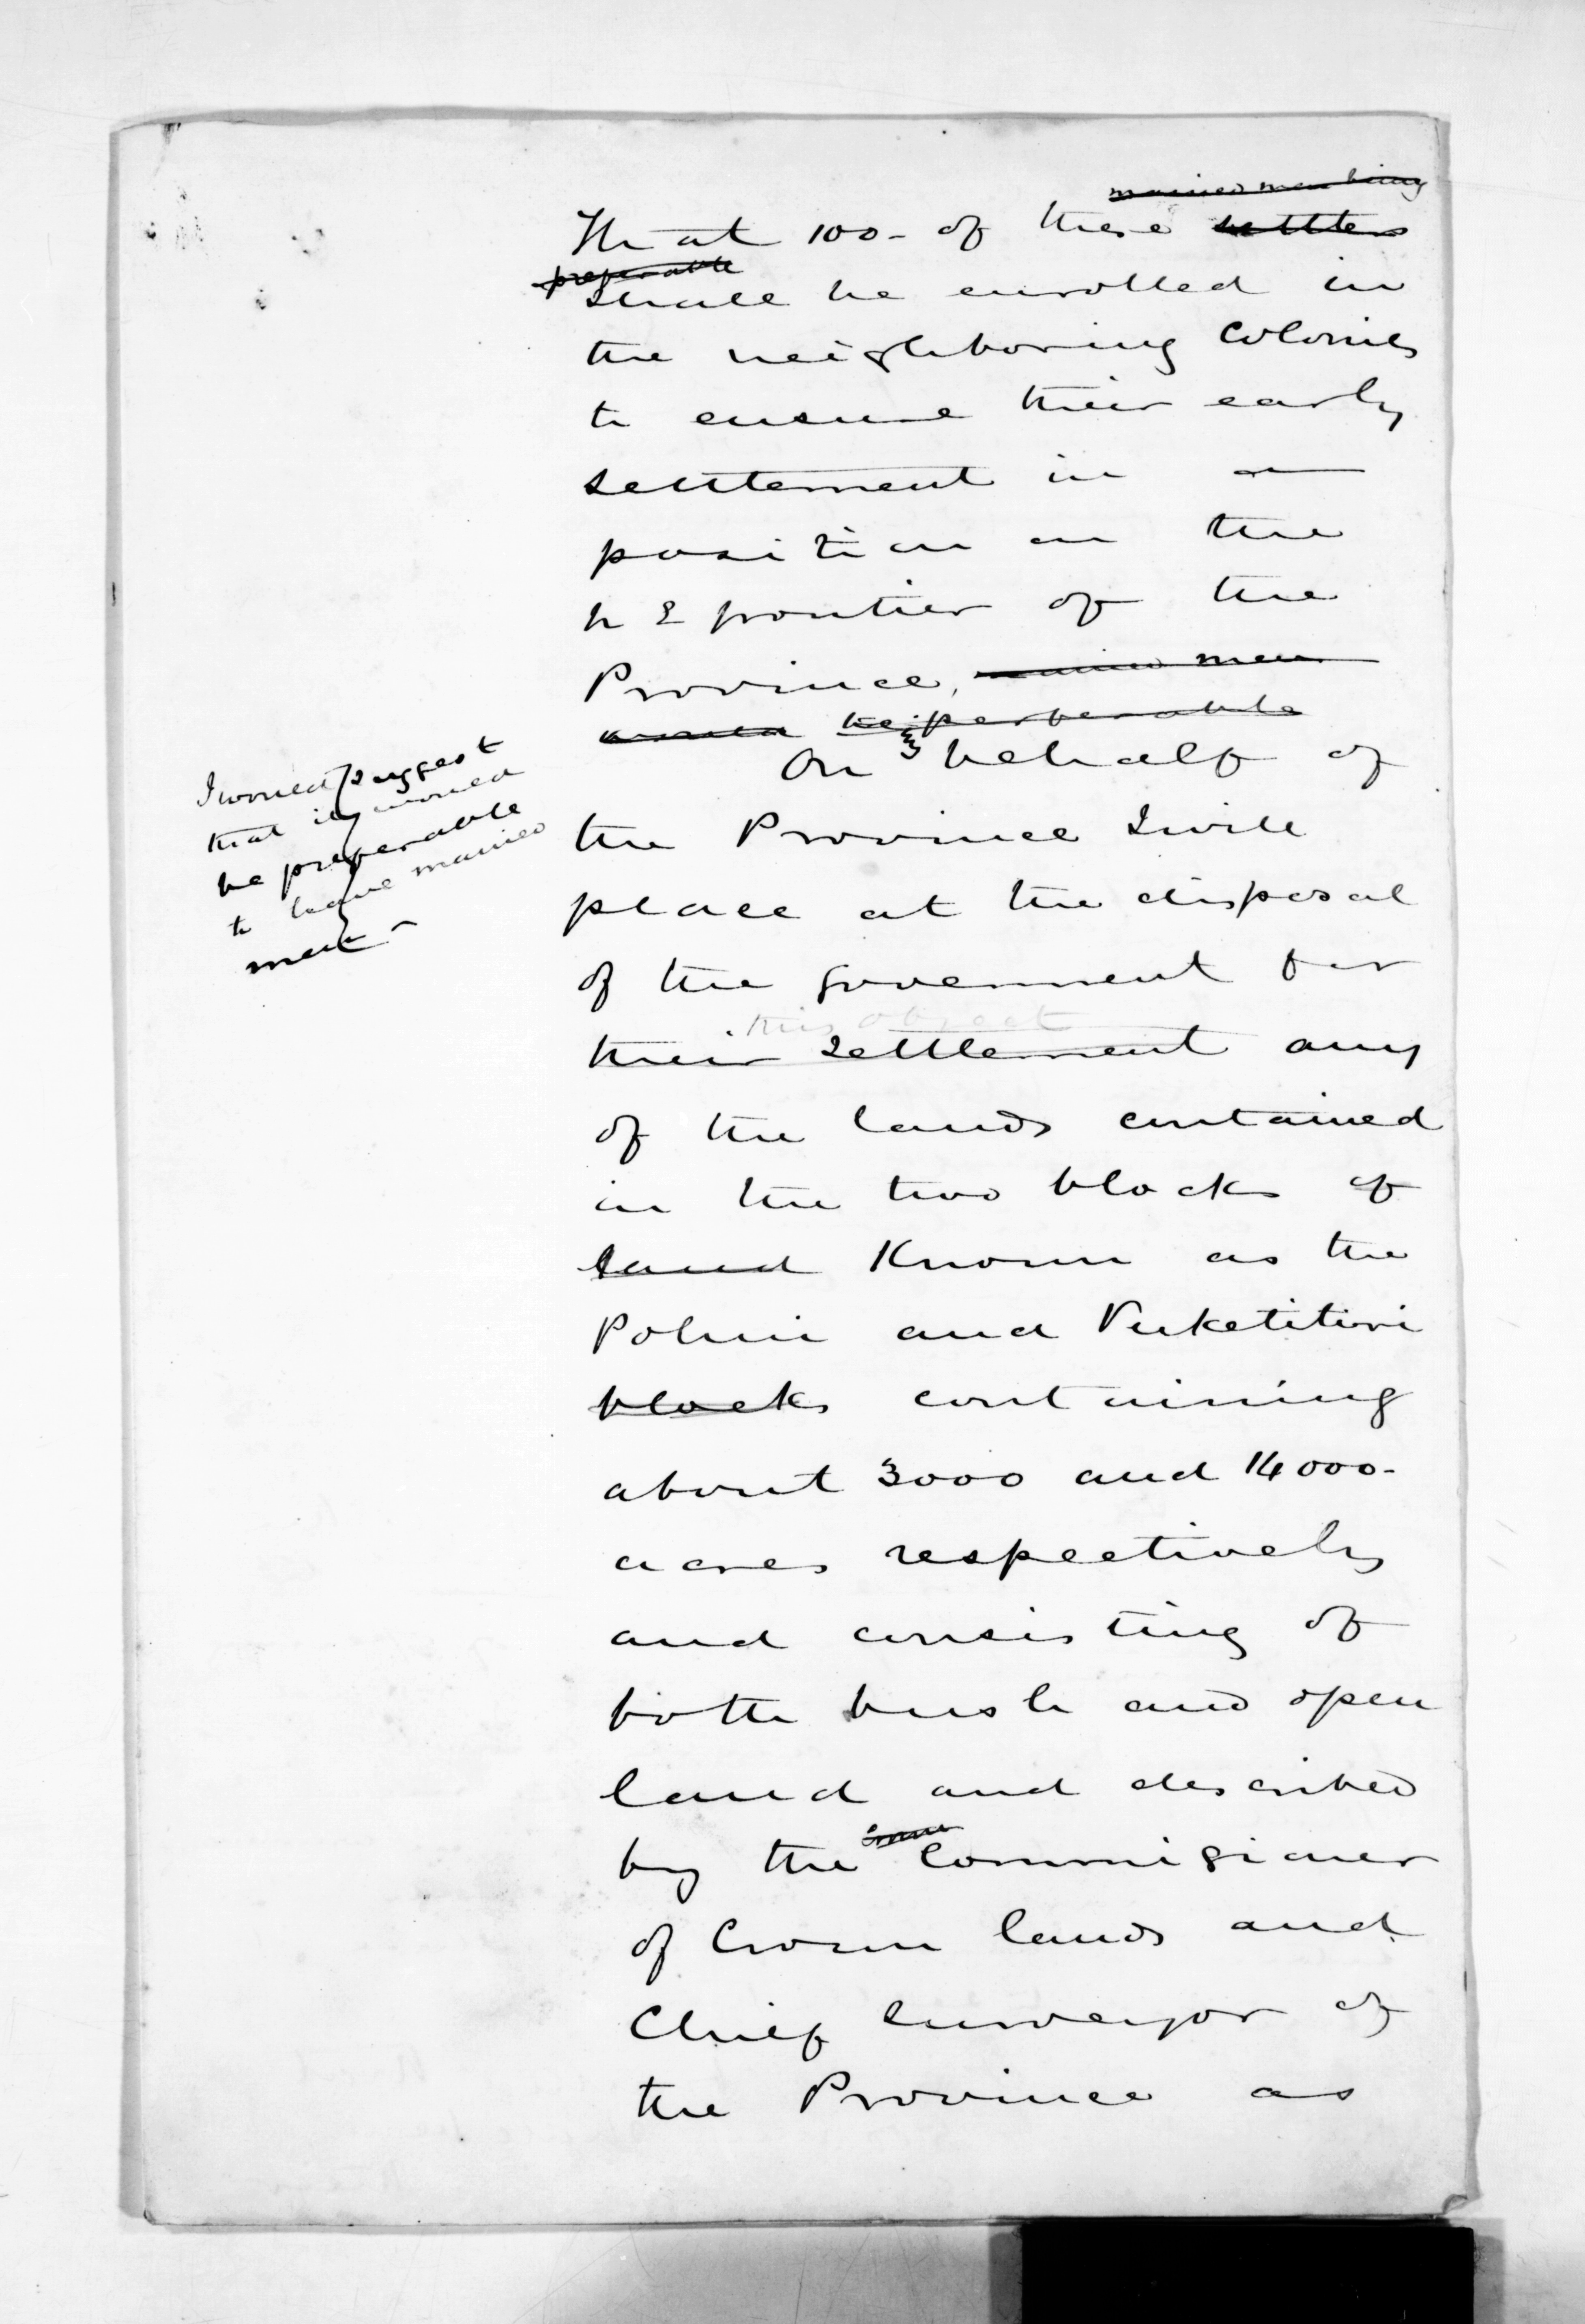 married men being
That 100 - of these settlers
preferable
shall be enrolled in
the neighboring Colonies
to ensure their early
settlement in a
position on the
N E frontier of the
Province, married men
would be preferable
On behalf of
the Province I will
place at the disposal
of the government for
this object
their settlement any
of the lands contained
in the two blocks of
land Known as the
Pohui and Puketitiri
blocks containing
about 3000 and 14000 -
acres respectively
and consisting of
both bush and open
land and described
by the Commissioner
of Crown lands and
Chief Surveyor of
the Province as
I would suggest
that it would
be preferable
to have married
men -